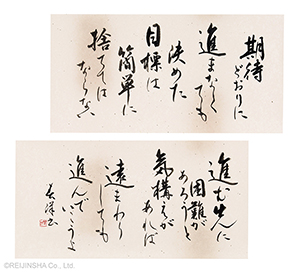 期待
どおりに
進まなく
ても
決めた
目標は
簡単に
捨てては
ならない
進む先に
困難が
あろうと
気構えが
あれば
遠まわり
しても
進んでいこうよ
©REIJINSHA Co., Ltd.